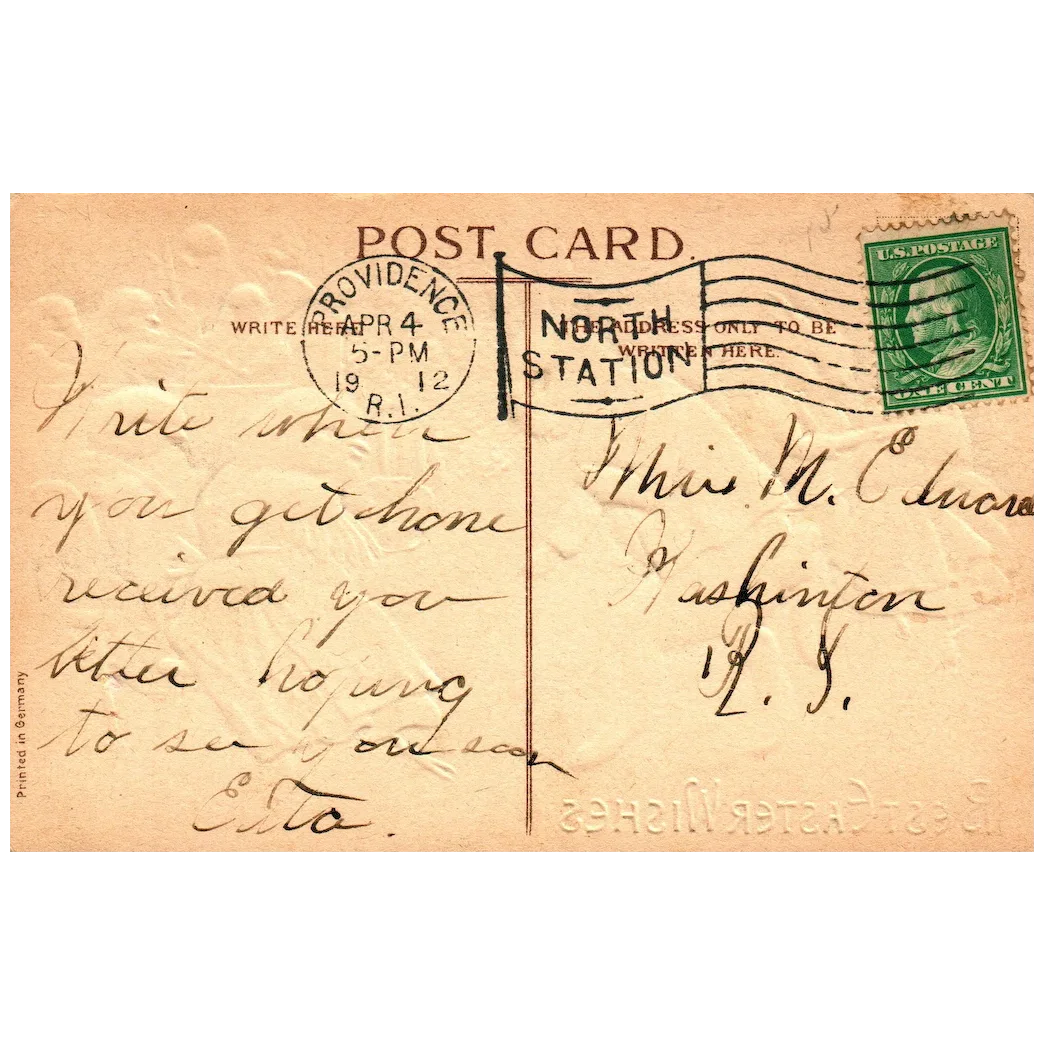 POST CARD.
WRITE HERE
THE ADDRESS ONLY TO BE
WRITTEN HERE.
PROVIDENCE
APR 4
5-PM
1912
R.I.
NORTH
STATION
U.S. POSTAGE
ONE CENT
Write when
you get home
received you
letter hoping
to see you soon
Miss M. Edward
Washinton
R. I.
Printed in Germany
BEST EASTER WISHES